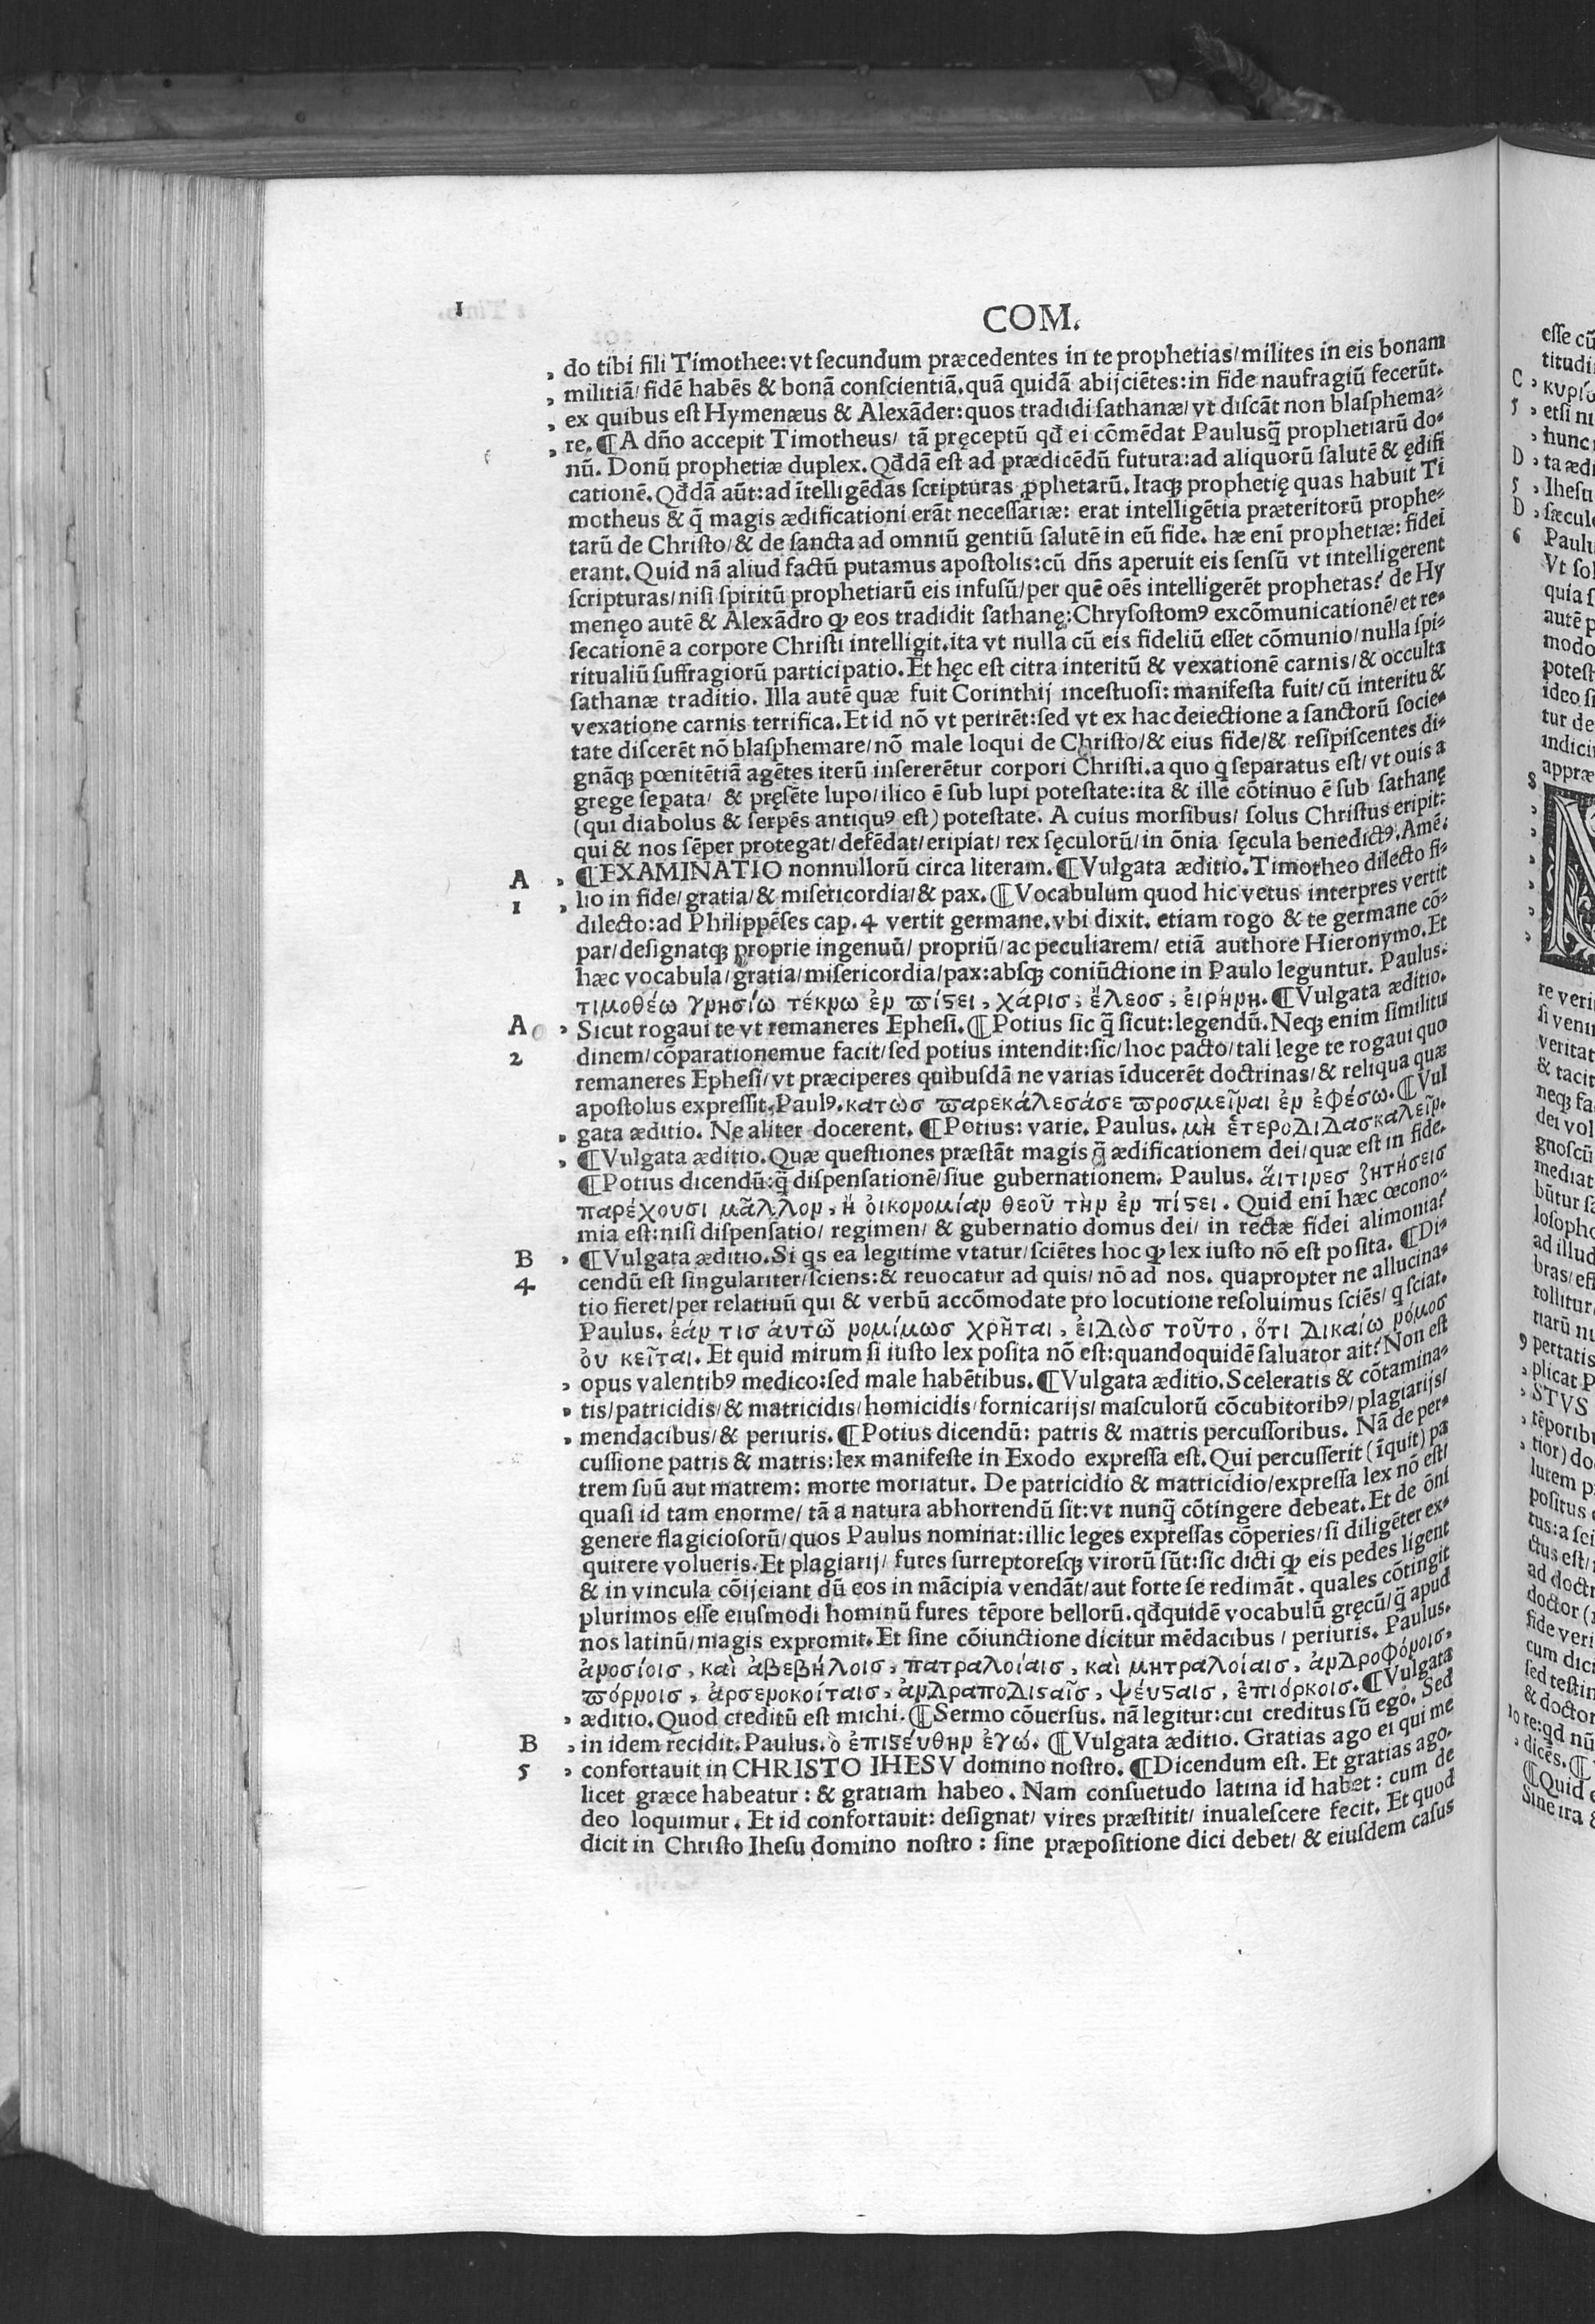 1
COM.
do tibi fili Timothee: vt secundum præcedentes in te prophetias/ milites in eis bonam
militiā/ fidē habēs & bonā conscientiā. quā quidā abijciētes: in fide naufragiū fecerūt.
ex quibus est Hymenæus & Alexāder: quos tradidi sathanæ/ vt discāt non blasphema⸗
re. ¶ A dño accepit Timotheus/ tā pręceptū qđ ei cōmēdat Paulusq̄ prophetiarū do⸗
nū. Donū prophetiæ duplex. Qđdā est ad prædicēdū futura: ad aliquorū salutē & ędifi
cationē. Qđdā aūt: ad ītelligēdas scripturas ꝓphetarū. Itaqꝫ prophetię quas habuit Ti
motheus & q̄ magis ædificationi erāt necessariæ: erat intelligētia præteritorū prophe⸗
tarū de Christo/ & de sancta ad omniū gentiū salutē in eū fide. hæ enī prophetiæ: fidei
erant. Quid nā aliud factū putamus apostolis: cū dñs aperuit eis sensū vt intelligerent
scripturas/ nisi spiritū prophetiarū eis infusū/ per quē oēs intelligerēt prophetas? de Hy
menęo autē & Alexādro ꝙ eos tradidit sathanę: Chrysostomꝰ excōmunicationē/ et re⸗
secationē a corpore Christi intelligit. ita vt nulla cū eis fideliū esset cōmunio/ nulla spi⸗
ritualiū suffragiorū participatio. Et hęc est citra interitū & vexationē carnis/ & occulta
sathanæ traditio. Illa autē quæ fuit Corinthij incestuosi: manifesta fuit/ cū interitu &
vexatione carnis terrifica. Et id nō vt perirēt: sed vt ex hac deiectione a sanctorū socie⸗
tate discerēt nō blasphemare/ nō male loqui de Christo/ & eius fide/ & resipiscentes di⸗
gnāqꝫ pœnitētiā agētes iterū insererētur corpori Christi. a quo q̇ separatus est/ vt ouis a
grege sepata/ & pręsēte lupo/ ilico ē sub lupi potestate: ita & ille cōtinuo ē sub sathanę
(qui diabolus & serpēs antiquꝰ est) potestate. A cuius morsibus/ solus Christus eripit:
qui & nos sēper protegat/ defēdat/ eripiat/ rex sęculorū/ in ōnia sęcula benedictꝰ. Amē.
A ¶ EXAMINATIO nonnullorū circa literam. ¶ Vulgata æditio. Timotheo dilecto fi⸗
1 lio in fide/ gratia/ & misericordia/ & pax. ¶ Vocabulum quod hic vetus interpres vertit
dilecto: ad Philippēses cap. 4 vertit germane. vbi dixit. etiam rogo & te germane cō⸗
par/ designatqꝫ proprie ingenuū/ propriū/ ac peculiarem/ etiā authore Hieronymo. Et
hæc vocabula/ gratia/ misericordia/ pax: absqꝫ coniūctione in Paulo leguntur. Paulus.
τιμοθέω γνησίω τέκνω ἐν ϖίϛει, χάρισ, ἔλεοσ, ἐιρήνη. ¶ Vulgata æditio.
A Sicut rogaui te vt remaneres Ephesi. ¶ Potius sic q̄ sicut: legendū. Neqꝫ enim similitu
2 dinem/ cōparationemue facit/ sed potius intendit: sic/ hoc pacto/ tali lege te rogaui quo
remaneres Ephesi/ vt præciperes quibusdā ne varias īducerēt doctrinas/ & reliqua quæ
apostolus expressit. Paulꝰ. κατὼσ ϖαρεκάλεσάσε ϖροσμεῖναι ἐν ἐφέσω. ¶ Vul
gata æditio. Ne aliter docerent. ¶ Potius: varie. Paulus. μὴ ἑτεροδιδασκαλεῖν.
¶ Vulgata æditio. Quæ questiones præstāt magis q̄ ædificationem dei/ quæ est in fide.
¶ Potius dicendū: q̄ dispensationē/ siue gubernationem. Paulus. ἅιτινεσ ζητήσεισ
παρέχουσι μᾶλλον, ἢ ὀικονομίαν θεοῦ τὴν ἐν πίϛει. Quid enī hæc œcono⸗
mia est: nisi dispensatio/ regimen/ & gubernatio domus dei/ in rectæ fidei alimonia?
B ¶ Vulgata æditio. Si qs ea legitime vtatur/ sciētes hoc ꝙ lex iusto nō est posita. ¶ Di⸗
4 cendū est singulariter/ sciens: & reuocatur ad quis/ nō ad nos. quapropter ne allucina⸗
tio fieret/ per relatiuū qui & verbū accōmodate pro locutione resoluimus sciēs/ q̇ sciat.
Paulus. ἐάν τισ ἀυτῶ νομίμωσ χρῆται, ἐιδὼσ τοῦτο, ὅτι δικαίω νόμοσ
ὀυ κεῖται. Et quid mirum si iusto lex posita nō est: quandoquidē saluator ait? Non est
opus valentibꝰ medico: sed male habētibus. ¶ Vulgata æditio. Sceleratis & cōtamina⸗
tis/ patricidis/ & matricidis/ homicidis/ fornicarijs/ masculorū cōcubitoribꝰ/ plagiarijs/
mendacibus/ & periuris. ¶ Potius dicendū: patris & matris percussoribus. Nā de per⸗
cussione patris & matris: lex manifeste in Exodo expressa est. Qui percusserit (īquit) pa
trem suū aut matrem: morte moriatur. De patricidio & matricidio/ expressa lex nō est/
quasi id tam enorme/ tā a natura abhorrendū sit: vt nunq̄ cōtingere debeat. Et de ōni
genere flagiciosorū/ quos Paulus nominat: illic leges expressas cōperies/ si diligēter ex⸗
quirere volueris. Et plagiarij/ fures surreptoresqꝫ virorū sūt: sic dicti ꝙ eis pedes ligent
& in vincula cōijciant dū eos in mācipia vendāt/ aut forte se redimāt. quales cōtingit
plurimos esse eiusmodi hominū fures tēpore bellorū. qđquidē vocabulū gręcū/ q̄ apud
nos latinū/ magis expromit. Et sine cōiunctione dicitur mēdacibus / periuris. Paulus.
ἀνοσίοισ, καὶ ἀβεβήλοισ, πατραλοίαισ, καὶ μητραλοίαισ, ἀνδροφόνοισ,
ϖόρνοισ, ἀρσενοκοίταισ, ἀνδραποδιϛαῖσ, ψέυϛαισ, ἐπιόρκοισ. ¶ Vulgata
æditio. Quod creditū est michi. ¶ Sermo cōuersus. nā legitur: cui creditus sū ego. Sed
B in idem recidit. Paulus. ὃ ἐπιϛέυθην ἐγώ. ¶ Vulgata æditio. Gratias ago ei qui me
5 confortauit in CHRISTO IHESV domino nostro. ¶ Dicendum est. Et gratias ago.
licet græce habeatur: & gratiam habeo. Nam consuetudo latina id habet: cum de
deo loquimur. Et id confortauit: designat/ vires præstitit/ inualescere fecit. Et quod
dicit in Christo Ihesu domino nostro: sine præpositione dici debet/ & eiusdem casus